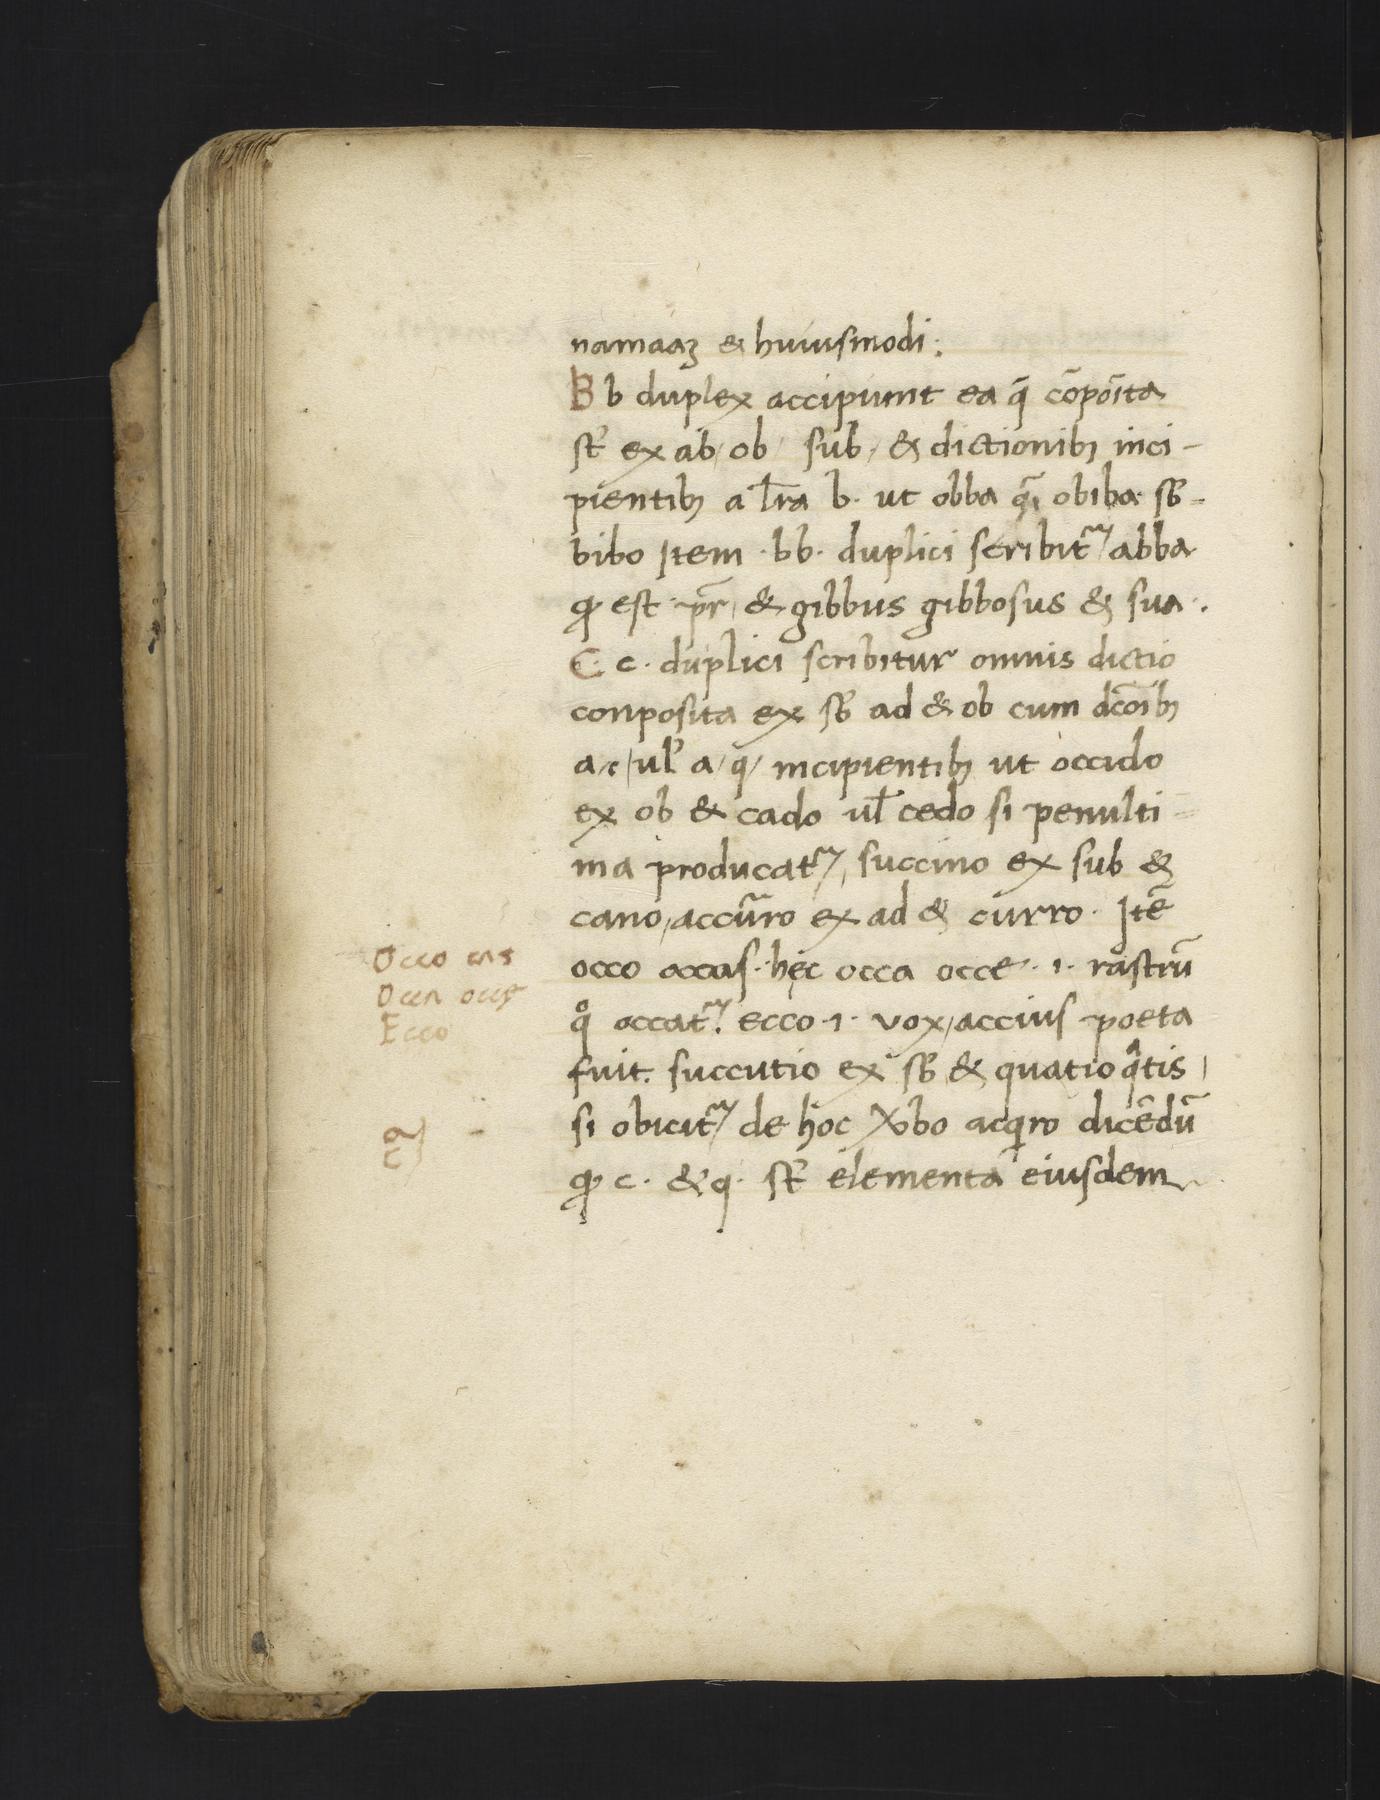 namaaꝫ & huiusmodi:
B b duplex accipiunt ea q̄ cōpōita
st̄ ex ab / ob / sub / & dictionibꝫ inci-
pientibꝫ a l̄ra b. ut obba q̄i obiba sb̄-
bibo Item .bb. duplici scribit̄ʳ abba
ꝙ est pr̄ / & gibbus gibbosus & sua.
C c. duplici scribitur omnis dictio
conposita ex sb̄ ad & ob cum dc̄oībꝫ
a / c / ul' a / q / incipientibꝫ ut occido
ex ob & cado ul̄ cedo si penulti-
ma producat̄ʳ, succino ex sub &
cano / accūro ex ad & curro. Itē
occo occas. hęc occa occe .i. rastrū
qͦ occat̄ʳ. ecco .i. vox / accius poeta
fuit. succutio ex sb̄ & quatio qᵃtis /
si obicit̄ʳ / de hoc v̄bo acqiro dicēdū
ꝙ c. & q. st̄ elementa eiusdem
Occo cas
Occa occe
Ecco